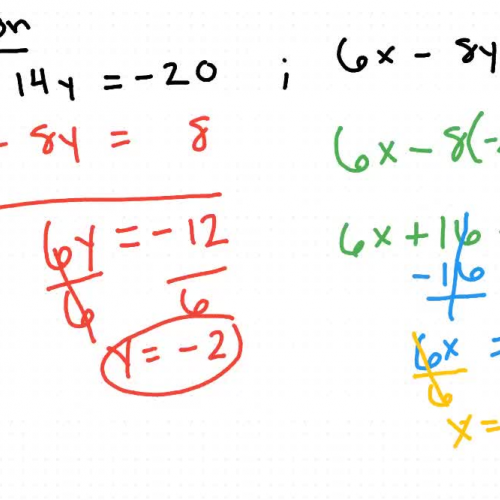 on
14y = -20 ; 6x - 8y
- 8y = 8
6x - 8(-
6y = -12
6 6
6x + 16
-16
y = -2
6x =
6
x =